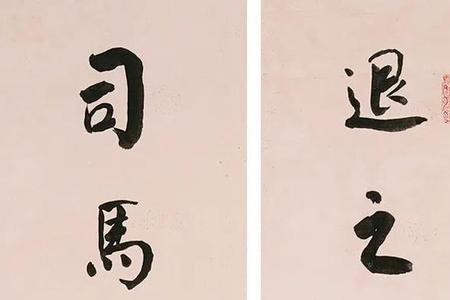 退之
司馬